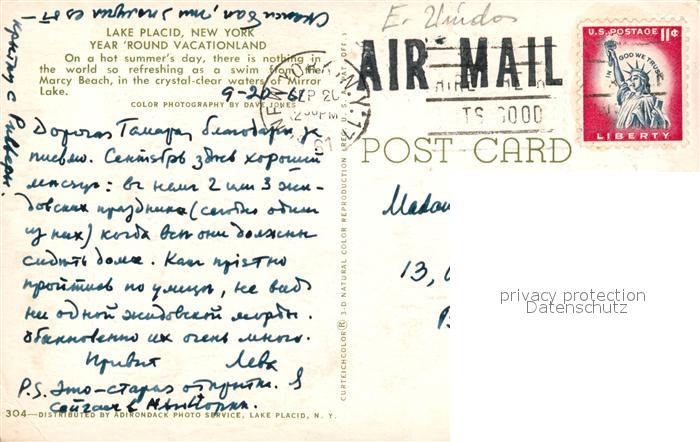 LAKE PLACID, NEW YORK
YEAR 'ROUND VACATIONLAND
On a hot summer's day, there is nothing in
the world so refreshing as a swim from the
Marcy Beach, in the crystal-clear waters of Mirror
Lake.
COLOR PHOTOGRAPHY BY DAVE JONES
9-20-61
Дорогая Тамара, благодарю за
письмо. Сентябрь здесь хороший
месяц: в нем 2 или 3 жи-
довских праздника (сегодня один
из них) когда все они должны
сидеть дома. Как приятно
пройтись по улице, не видя
ни одной жидовской морды.
Обыкновенно их очень много.
Привет Лева
P.S. Это-старая открытка. Я
сейчас в Нью Йорке.
304—DISTRIBUTED BY ADIRONDACK PHOTO SERVICE, LAKE PLACID, N. Y.
открытку с Ривьеры.
CURTEICHCOLOR® 3-D NATURAL COLOR REPRODUCTION (REG. U.S.A. PAT. OFF.)
E. Unidos
AIR MAIL
SEP 20
2 30 PM
1961
N.Y.
ITS GOOD
U.S. POSTAGE 11¢
IN GOD WE TRUST
LIBERTY
POST CARD
Madam
13,
privacy protection
Datenschutz